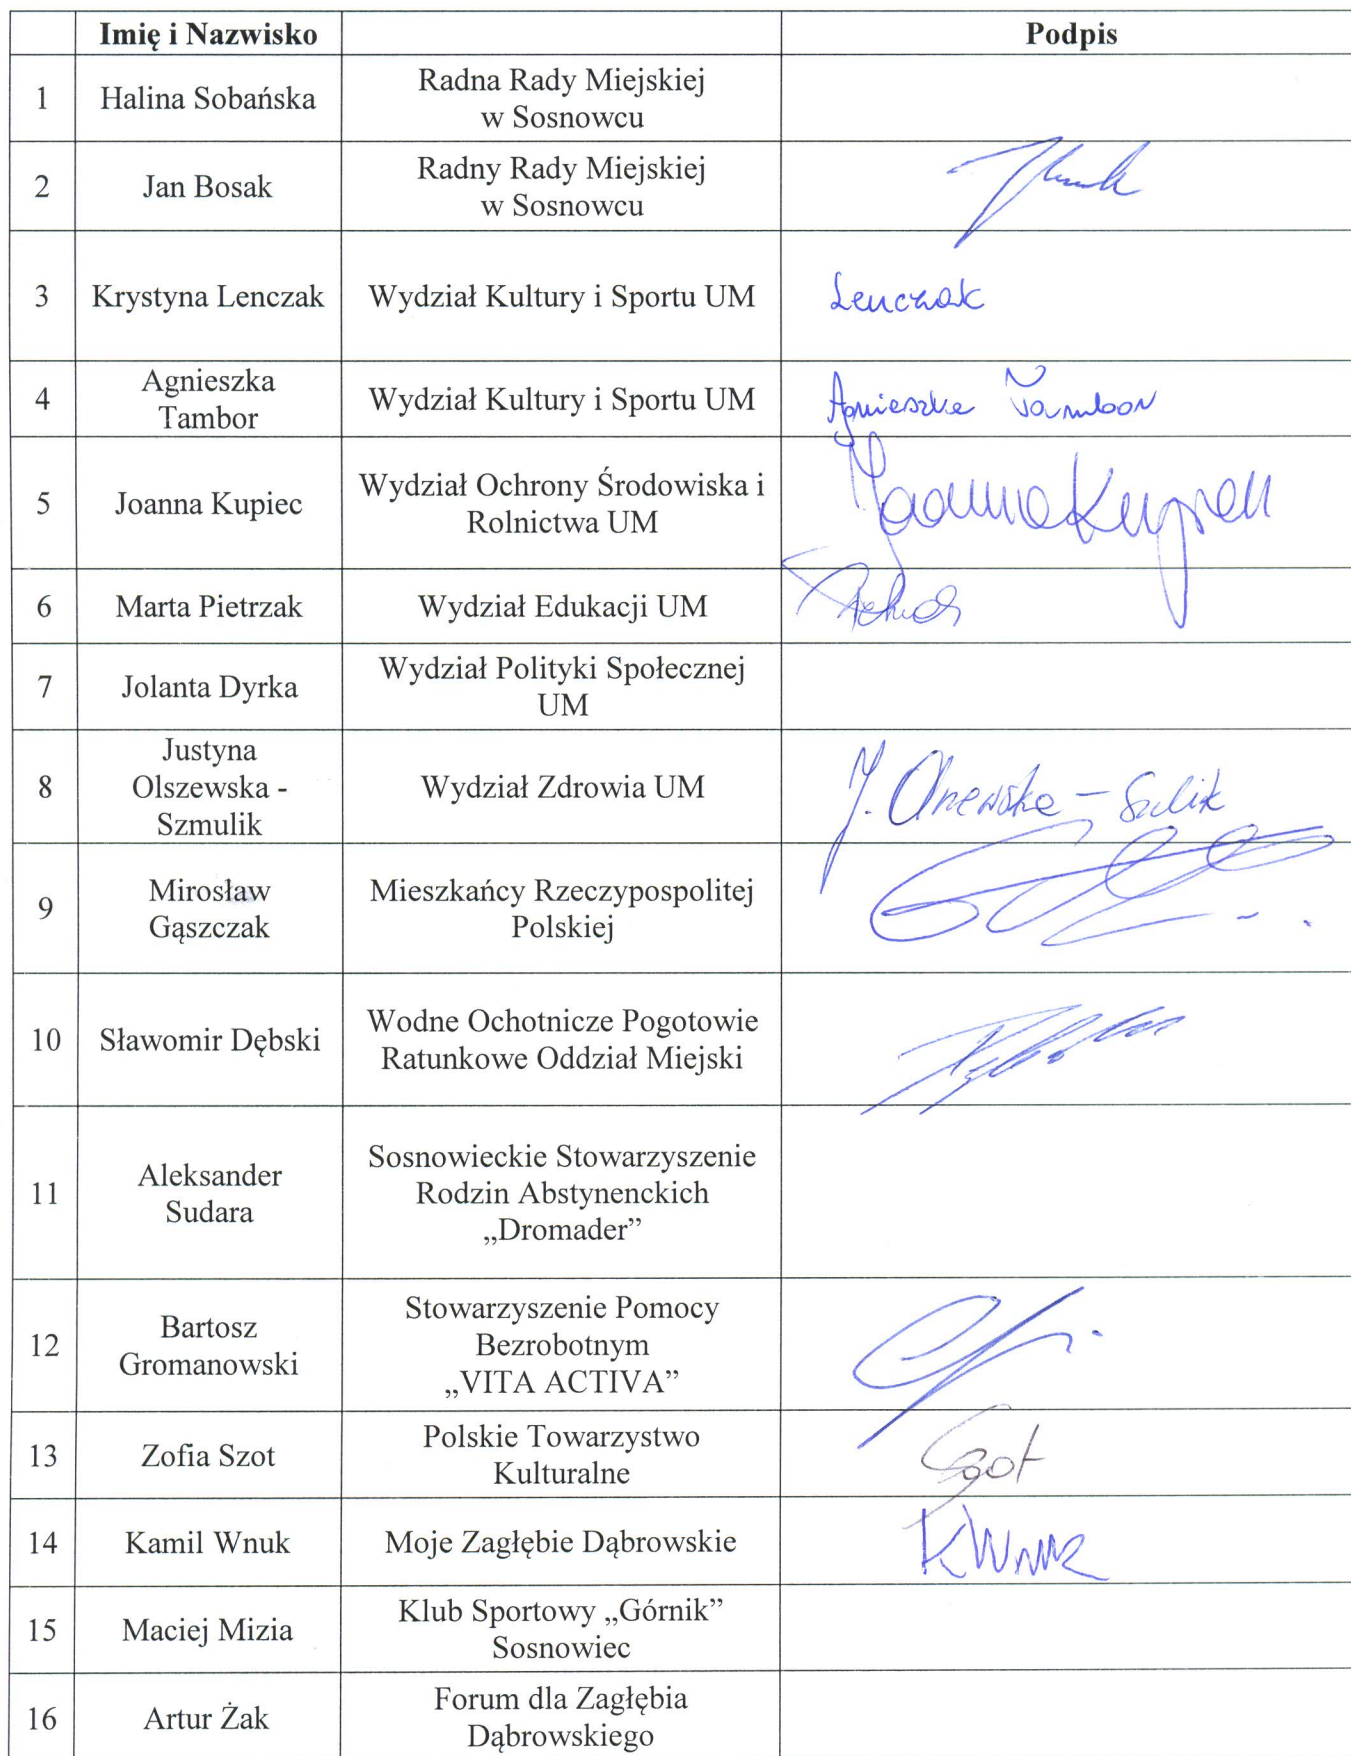 Imię i Nazwisko Podpis
1 Halina Sobańska Radna Rady Miejskiej
w Sosnowcu
2 Jan Bosak Radny Rady Miejskiej
w Sosnowcu
3 Krystyna Lenczak Wydział Kultury i Sportu UM Lenczak
4 Agnieszka
Tambor Wydział Kultury i Sportu UM Agnieszka Tambor
5 Joanna Kupiec Wydział Ochrony Środowiska i
Rolnictwa UM Joanna Kupiec
6 Marta Pietrzak Wydział Edukacji UM
7 Jolanta Dyrka Wydział Polityki Społecznej
UM
8 Justyna
Olszewska -
Szmulik Wydział Zdrowia UM J. Olszewska - Szulik
9 Mirosław
Gąszczak Mieszkańcy Rzeczypospolitej
Polskiej
10 Sławomir Dębski Wodne Ochotnicze Pogotowie
Ratunkowe Oddział Miejski
11 Aleksander
Sudara Sosnowieckie Stowarzyszenie
Rodzin Abstynenckich
„Dromader”
12 Bartosz
Gromanowski Stowarzyszenie Pomocy
Bezrobotnym
„VITA ACTIVA”
13 Zofia Szot Polskie Towarzystwo
Kulturalne Szot
14 Kamil Wnuk Moje Zagłębie Dąbrowskie KWnuk
15 Maciej Mizia Klub Sportowy „Górnik”
Sosnowiec
16 Artur Żak Forum dla Zagłębia
Dąbrowskiego